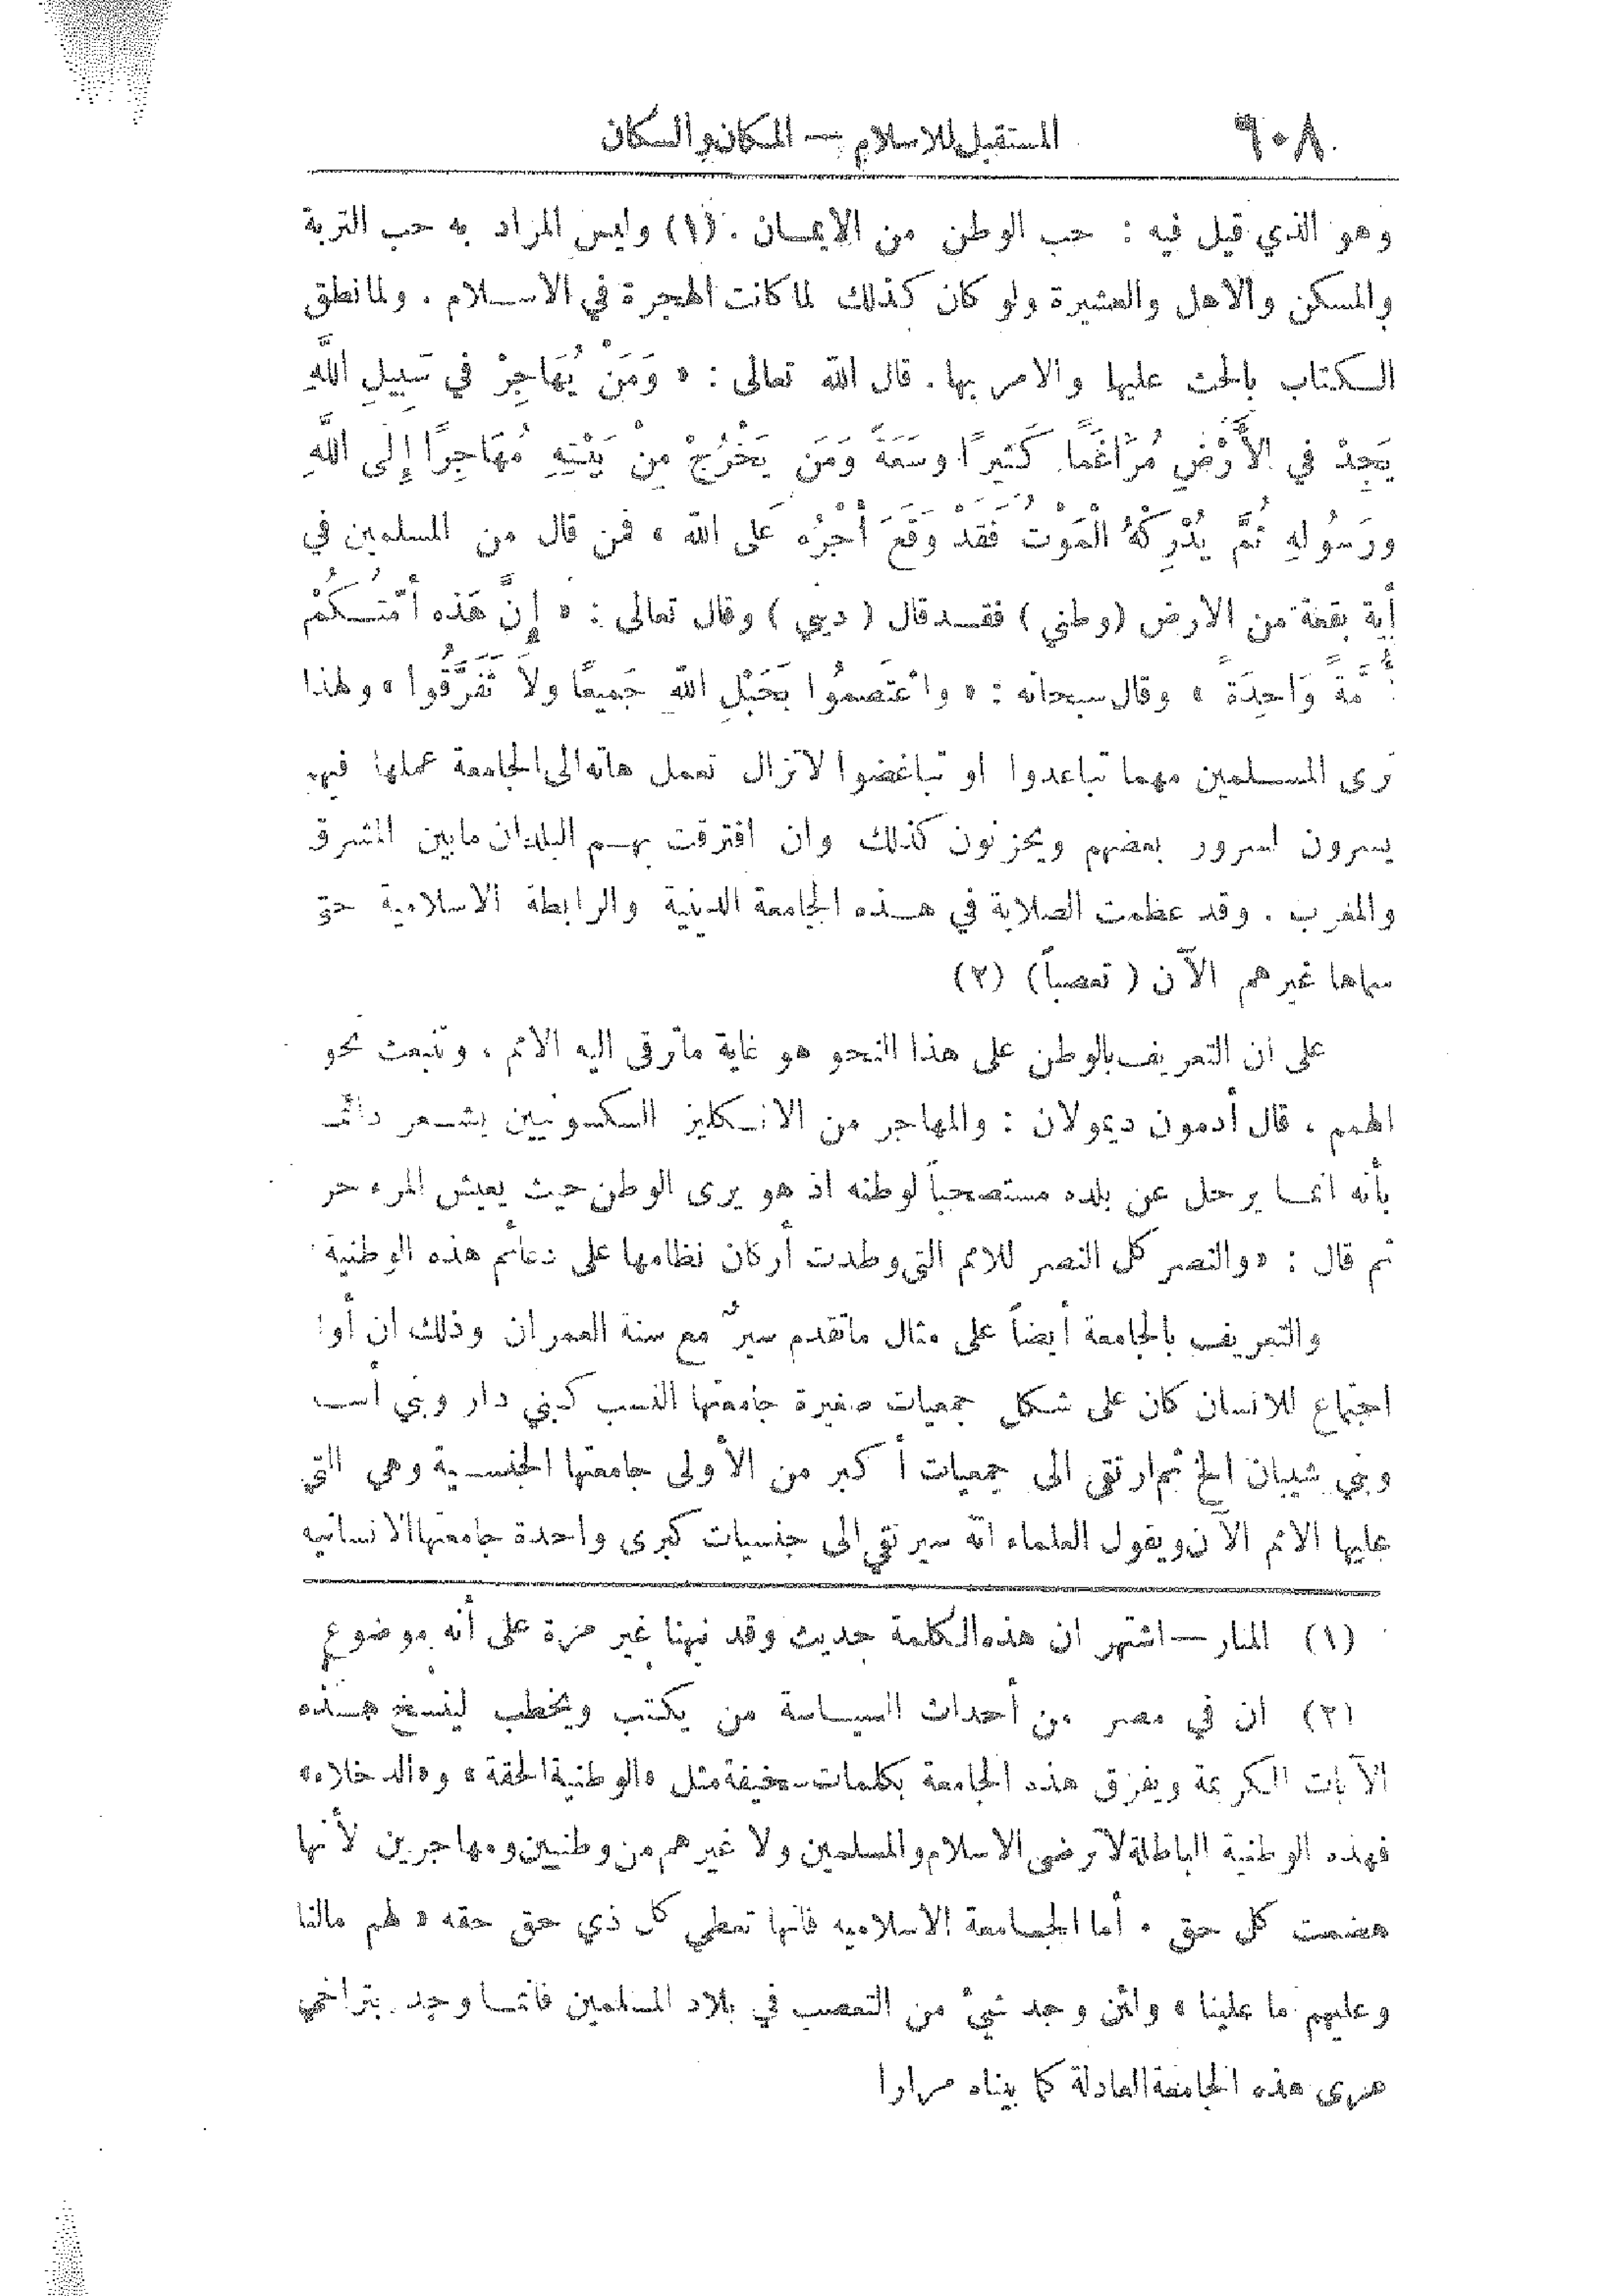 ٩٠٨ المستقبل للاسلام — المكان والسكان
وهو الذي قيل فيه : حب الوطن من الايمـان . (١) وليس المراد به حب التربة
والمسكن والاهل والعشيرة ولو كان كذلك لما كانت الهجرة في الاسـلام . ولما نطق
الـكتاب بالحث عليها والامر بها . قال الله تعالى : « وَمَنْ يُهَاجِرْ في سَبِيلِ اللَّهِ
يَجِدْ في الأَرْضِ مُرَاغَمًا كَثِيرًا وسَعَةً وَمَن يَخْرُجْ مِنْ بَيْتِهِ مُهَاجِرًا إِلَى اللَّهِ
ورَسُولِهِ ثُمَّ يُدْرِكْهُ الْمَوْتُ فَقَدْ وَقَعَ أَجْرُه عَلى الله » فمن قال من المسلمين في
أية بقعة من الارض (وطني) فقـد قال ( ديني ) وقال تعالى : « إِنَّ هَذه أُمَّتُـكُمْ
أُمَّةً وَاحِدَةً » وقال سبحانه : « واعْتَصمُوا بِحَبْلِ اللهِ جَميعًا ولاَ تَفَرَّقُوا » ولهذا
ترى المسـلمين مهما تباعدوا او تباغضوا لا تزال تعمل هاته الجامعة عملها فيهم
يسرون لسرور بعضهم ويحزنون كذلك وان افترقت بهـم البلدان مابين المشرق
والمغرب . وقد عظمت الصلابة في هـذه الجامعة الدينية والرابطة الاسلامية حتى
سماها غيرهم الآن ( تعصباً ) (٢)
على ان التعريف بالوطن على هذا النحو هو غاية ماترقى اليه الامم ، وتنبعث نحو
الهمم ، قال أدمون ديمولان : والمهاجر من الانـكليز السكسونيين يشـعر دائمـ
بأنه انمـا يرحل عن بلده مستصحباً لوطنه اذ هو يرى الوطن حيث يعيش المرء حر
ثم قال : «والنصر كل النصر للامم التي وطدت أركان نظامها على دعائم هذه الوطنية
والتعريف بالجامعة أيضاً على مثال ماتقدم سيرٌ مع سنة العمران وذلك ان أو
اجتماع للانسان كان على شكل جمعيات صغيرة جامعتها النسب كبني دار وبني أسـ
وبني شيبان الخ ثم ارتقى الى جمعيات أكبر من الأولى جامعتها الجنسـية وهي التي
عليها الامم الآن ويقول العلماء انه سيرتقي الى جنسيات كبرى واحدة جامعتها الانسانيه
(١) المنار — اشتهر ان هذه الكلمة حديث وقد نبهنا غير مرة على أنه موضوع
(٢) ان في مصر من أحداث السياسة من يكتب ويخطب لينسخ هـذه
الآيات الكريمة ويفرق هذه الجامعة بكلمات سخيفة مثل «الوطنية الحقة» و«الدخلاء»
فهذه الوطنية الباطلة لاترضى الاسلام والمسلمين ولا غيرهم من وطنيين ومهاجرين لأنها
هضمت كل حق . أما الجـامعة الاسلاميه فانها تعطي كل ذي حق حقه « لهم مالنا
وعليهم ما علينا » ولئن وجد شيئ من التعصب في بلاد المسلمين فانمـا وجد بتراخي
عرى هذه الجامعة العادلة كما بيناه مرارا